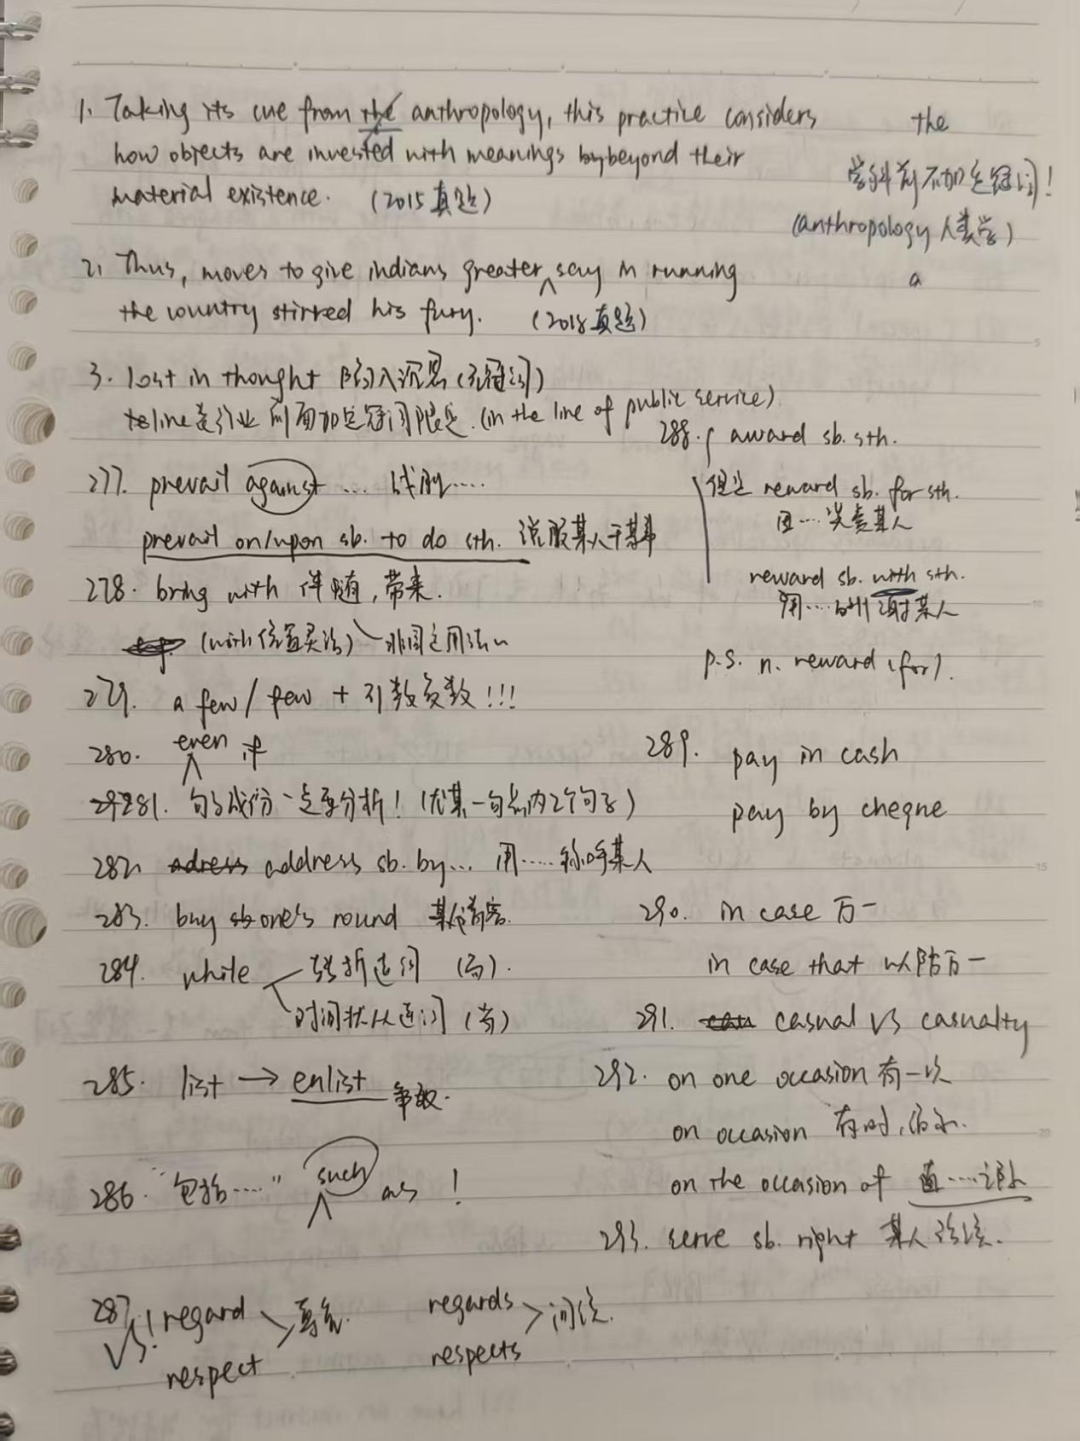 1. Taking its cue from the anthropology, this practice considers the
how objects are invested with meanings by beyond their
学科前不加定冠词！
material existence. (2015真题)
(anthropology 人类学)
2. Thus, moves to give indians greater say in running a
the country stirred his fury. (2018真题)
3. lost in thought 陷入沉思(无冠词)
line是行业 前面加定冠词限定. (in the line of public service)
277. prevail against ... 战胜....
prevail on/upon sb. to do sth. 说服某人干某事
278. bring with 伴随,带来.
(with位置灵活) 非固定用法
279. a few / few + 可数复数!!!
280. even if
281. 句子成份一定要分析! (尤其一句点内2个句子)
282. adress address sb. by... 用.....称呼某人
283. buy sb one's round
284. while 转折连词 (高).
时间状从连词 (岗)
285. list → enlist 争取.
286. "包括....." such as !
287. VS! regard
respect
regards 问候.
respects
288. award sb. sth.
但是 reward sb. for sth.
因...奖赏某人
reward sb. with sth.
用....酬谢某人
p.s. n. reward (for).
289. pay in cash
pay by cheque
290. in case 万一
in case that 以防万一
291. casual VS casualty
292. on one occasion 有一次
on occasion 有时,偶尔.
on the occasion of 值....之际
293. serve sb. right 某人活该.